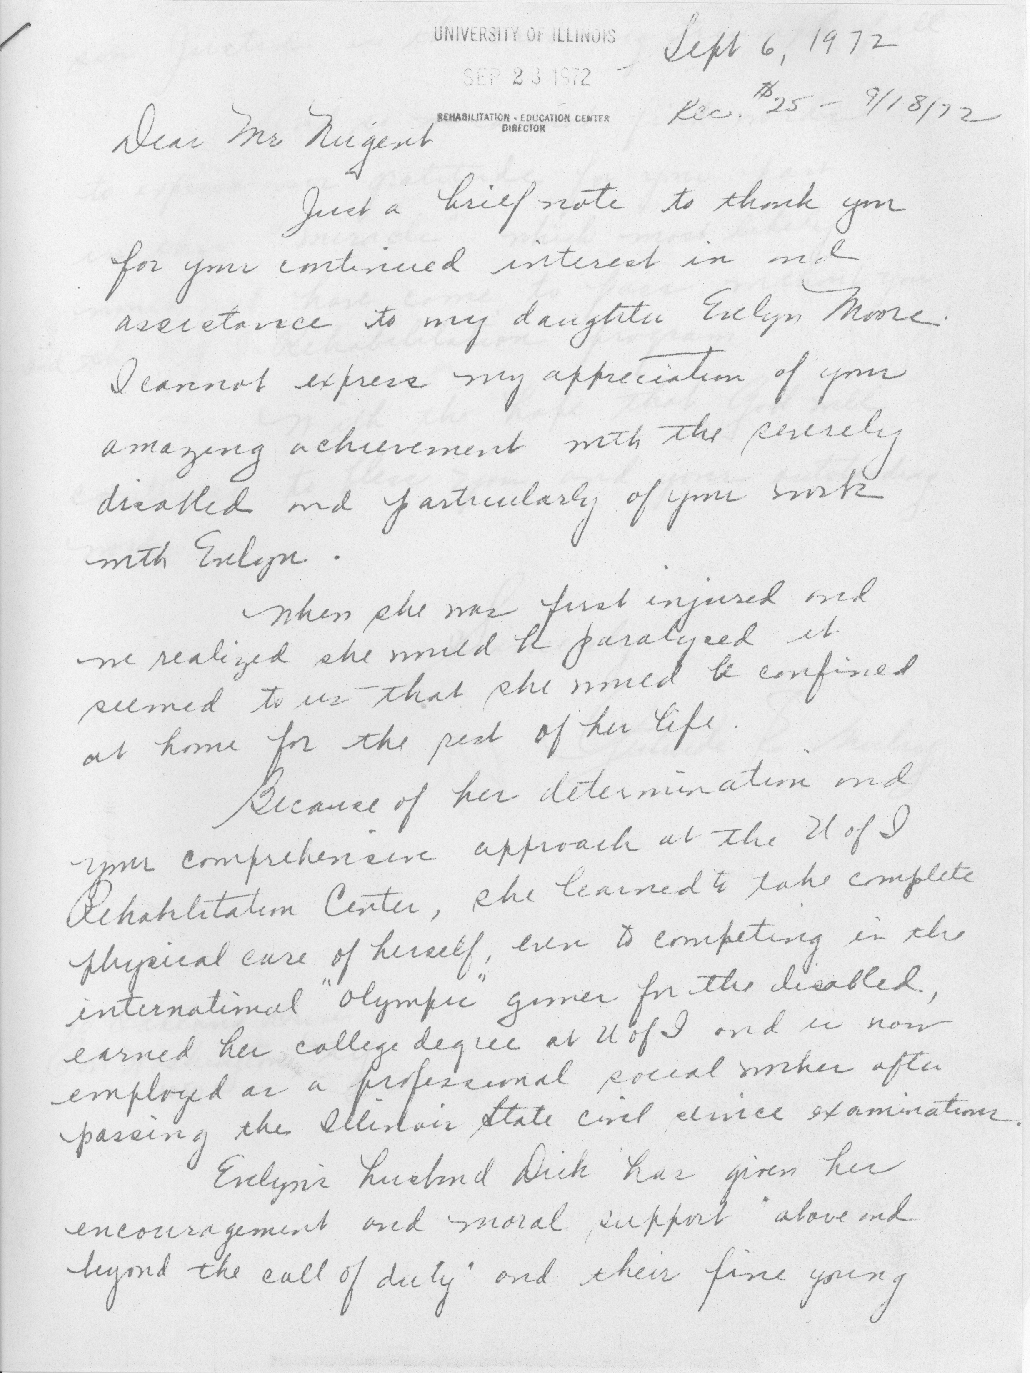 UNIVERSITY OF ILLINOIS
SEP 23 1972
REHABILITATION - EDUCATION CENTER
DIRECTOR
Sept 6, 1972
Rec. $25 - 9/18/72
Dear Mr Nugent
Just a brief note to thank you
for your continued interest in and
assistance to my daughter Evelyn Moore.
I cannot express my appreciation of your
amazing achievement with the severely
disabled and particularly of your work
with Evelyn.
When she was first injured and
we realized she would be paralyzed it
seemed to us that she would be confined
at home for the rest of her life.
Because of her determination and
your comprehensive approach at the U of I
Rehabilitation Center, she learned to take complete
physical care of herself, even to competing in the
international "Olympic" games for the disabled,
earned her college degree at U of I and is now
employed as a professional social worker after
passing the Illinois State civil service examinations.
Evelyn's husband Dick has given her
encouragement and moral support "above and
beyond the call of duty" and their fine young